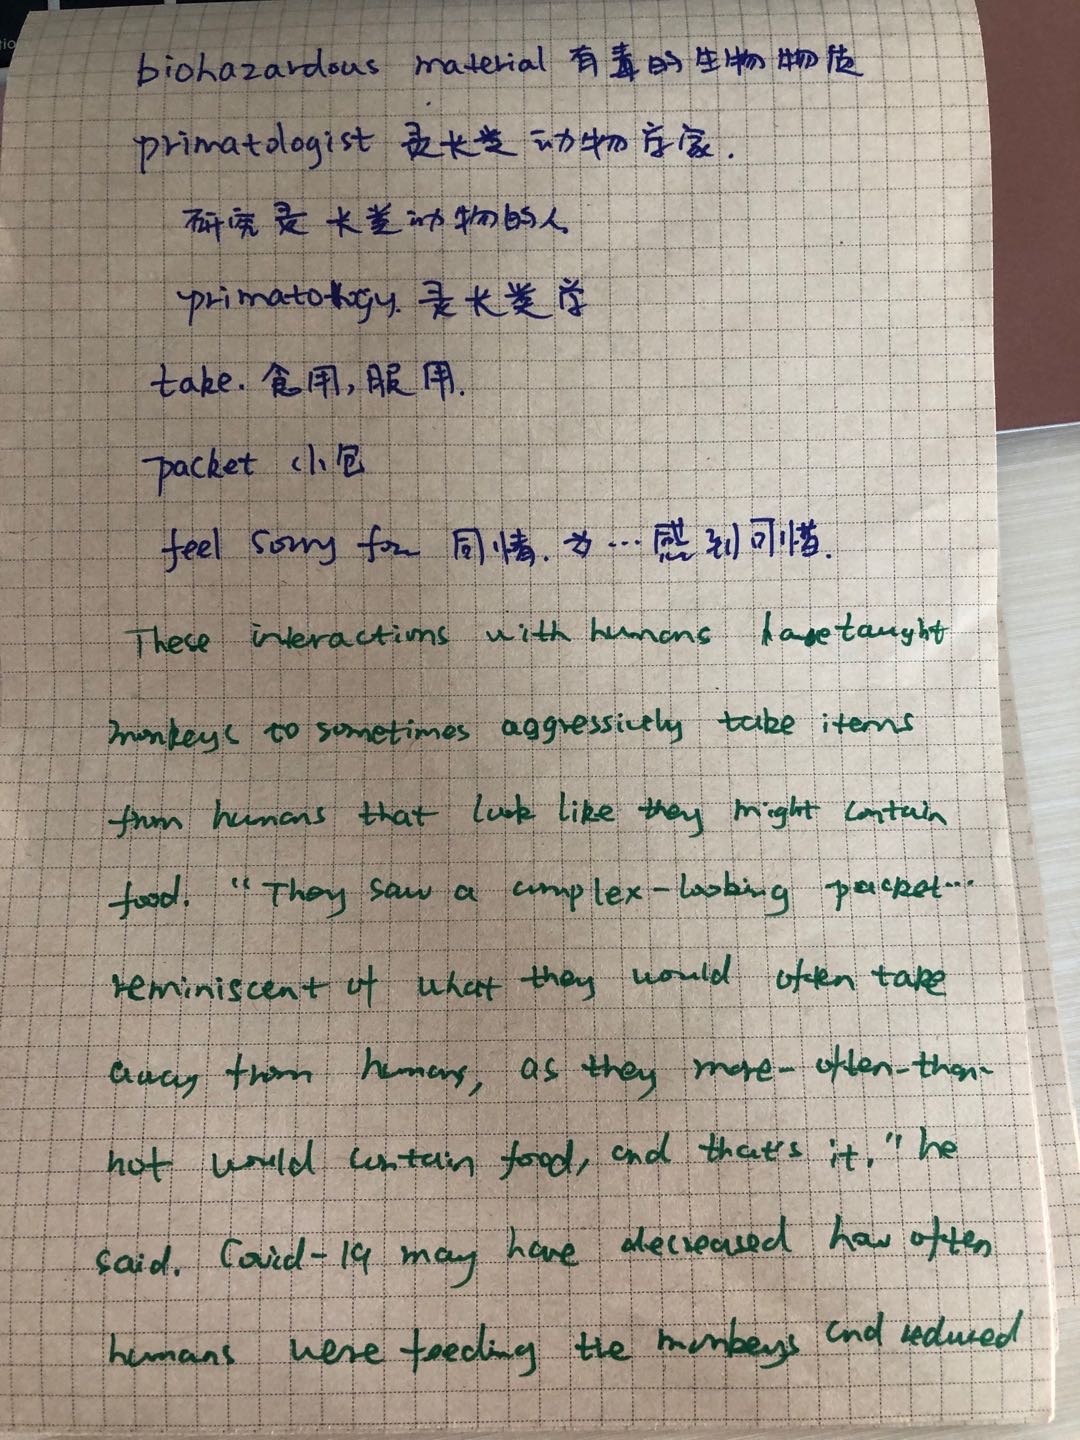 biohazardous material 有毒的生物物质
primatologist 灵长类动物学家.
研究灵长类动物的人
primatology. 灵长类学
take. 食用,服用.
packet 小包
feel sorry for 同情.为…感到可惜.
These interactions with humans have taught
monkeys to sometimes aggressively take items
from humans that look like they might contain
food. "They saw a complex-looking packet...
reminiscent of what they would often take
away from humans, as they more-often-than-
not would contain food, and that's it," he
said. Covid-19 may have decreased how often
humans were feeding the monkeys and reduced